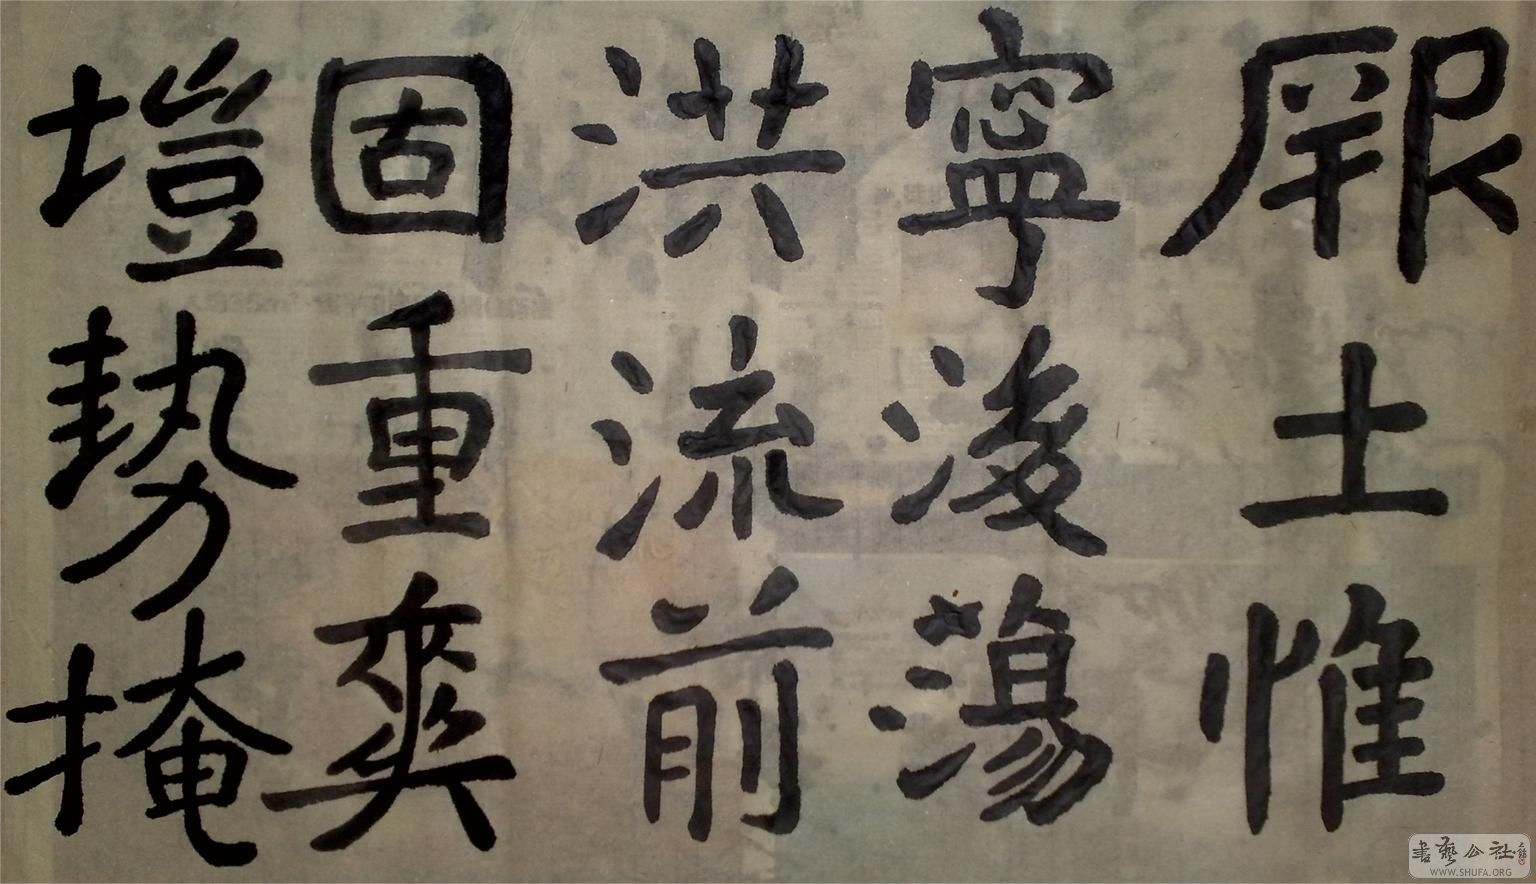 厥土惟
寧浚蕩
洪流前
固重爽
塏勢掩
書藝公社
WWW.SHUFA.ORG